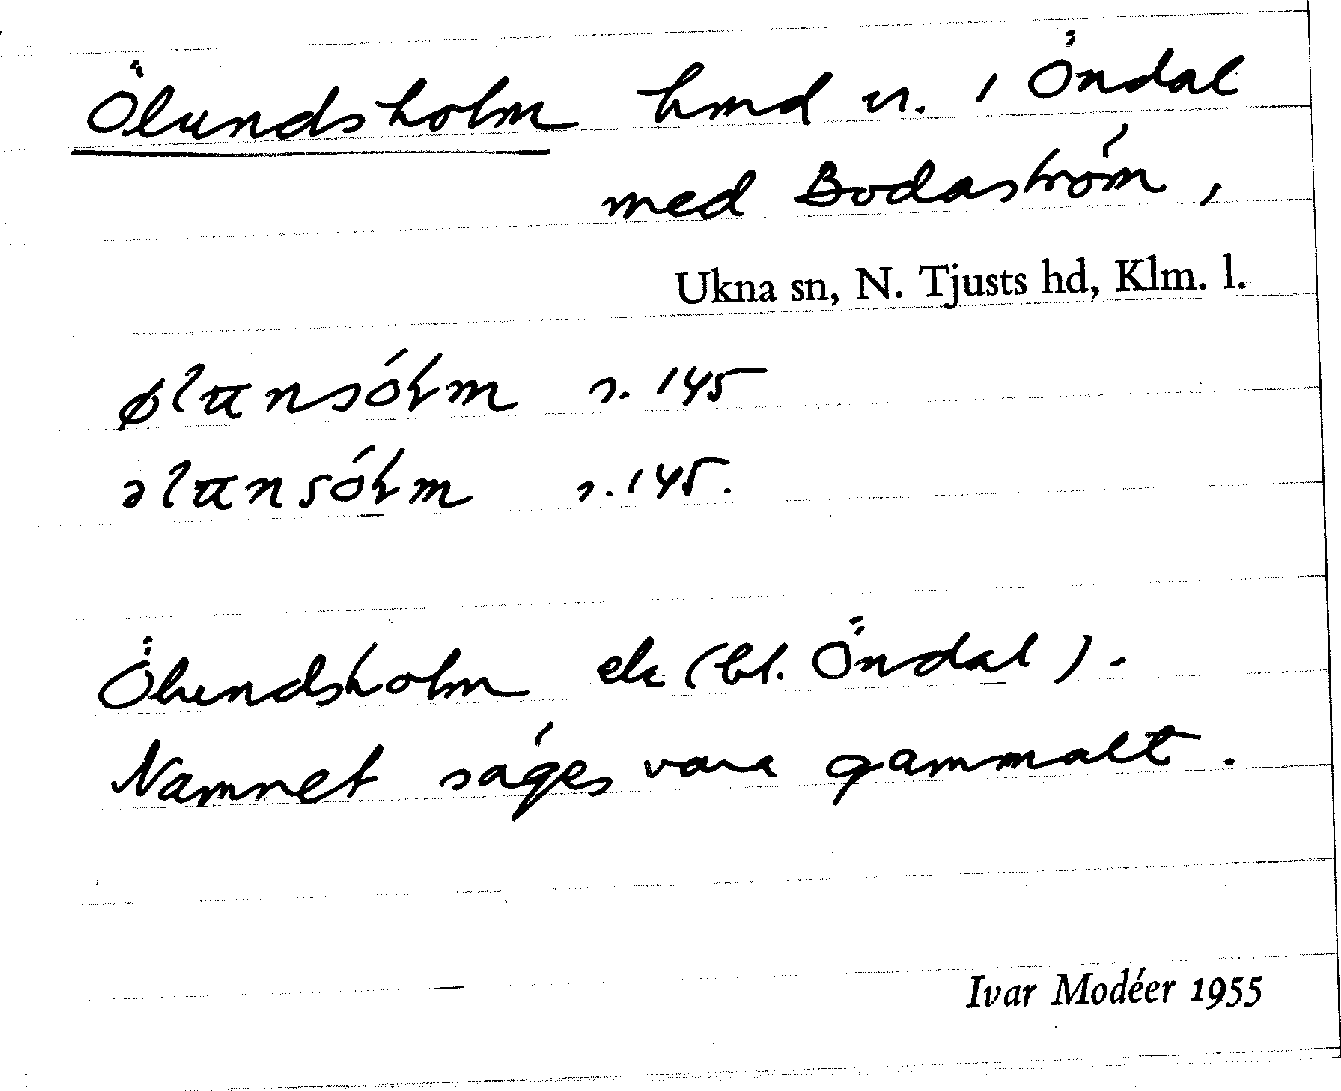 Ölundsholm hmd nr. 1 Öndal
med Bodaström,
Ukna sn, N. Tjusts hd, Klm. l.
s. 145
s. 145.
Ölundsholm ek (bl. Öndal).
Namnet säges vara gammalt.
Ivar Modéer 1955